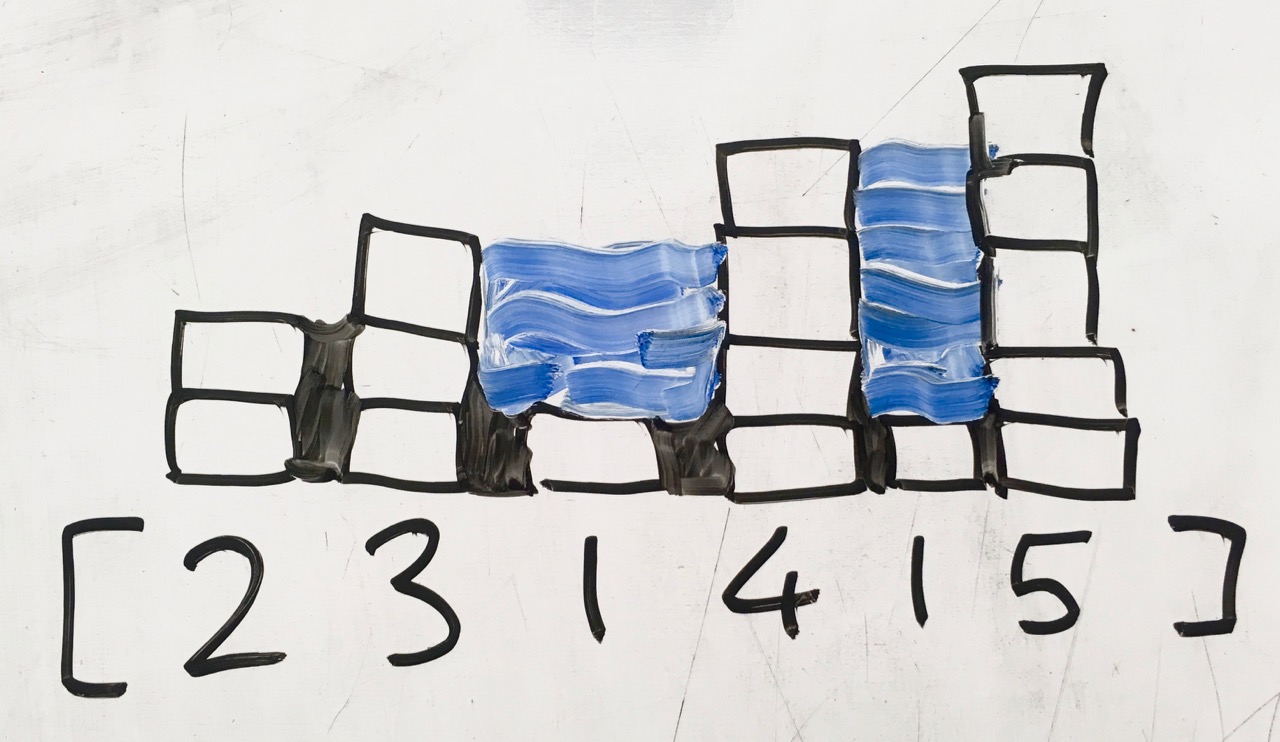 [ 2 3 1 4 1 5 ]